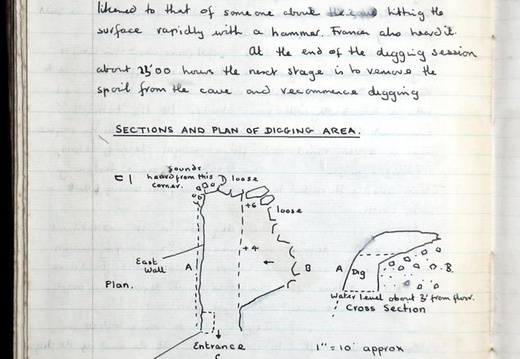 likened to that of someone about the cave hitting the
surface rapidly with a hammer. Frances also heard it.
At the end of the digging session
about 23'00 hours the next stage is to remove the
spoil from the cave and recommence digging
SECTIONS AND PLAN OF DIGGING AREA.
Sounds
heard from this
corner.
D
loose
+6
loose
East
Wall
A
+4
B
Plan.
Entrance
C
A
Dig
B.
Water level about 3' from floor.
Cross Section
1" = 10' approx